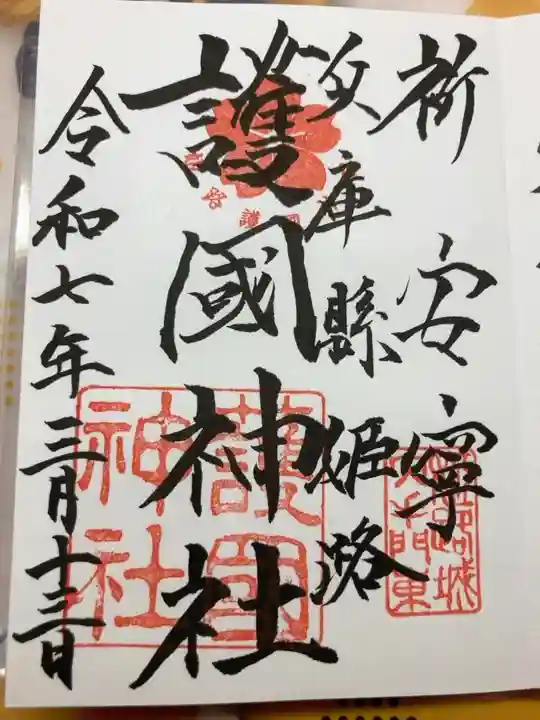 祈安寧
兵庫縣姫路
護國神社
令和七年三月十三日
護國神社
姫路城大手門東